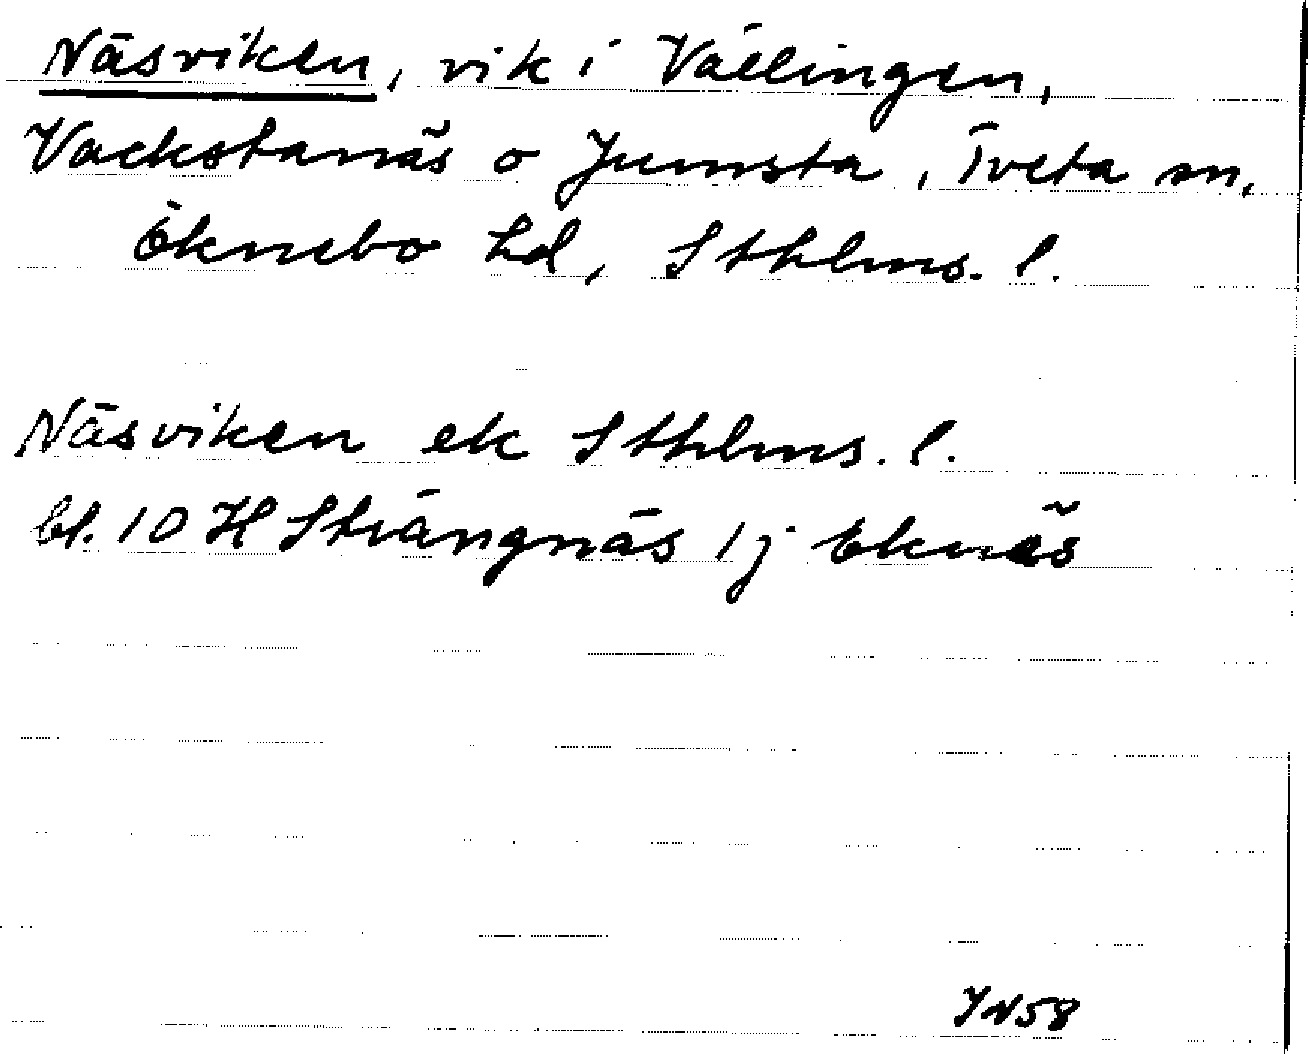 Näsviken, vik i Vällingen,
Vackstanäs o Jumsta, Tveta sn,
Öknebo hd, Sthlms. l.
Näsviken ek Sthlms. l.
bl. 10 H Strängnäs 1j Eknäs
JN58